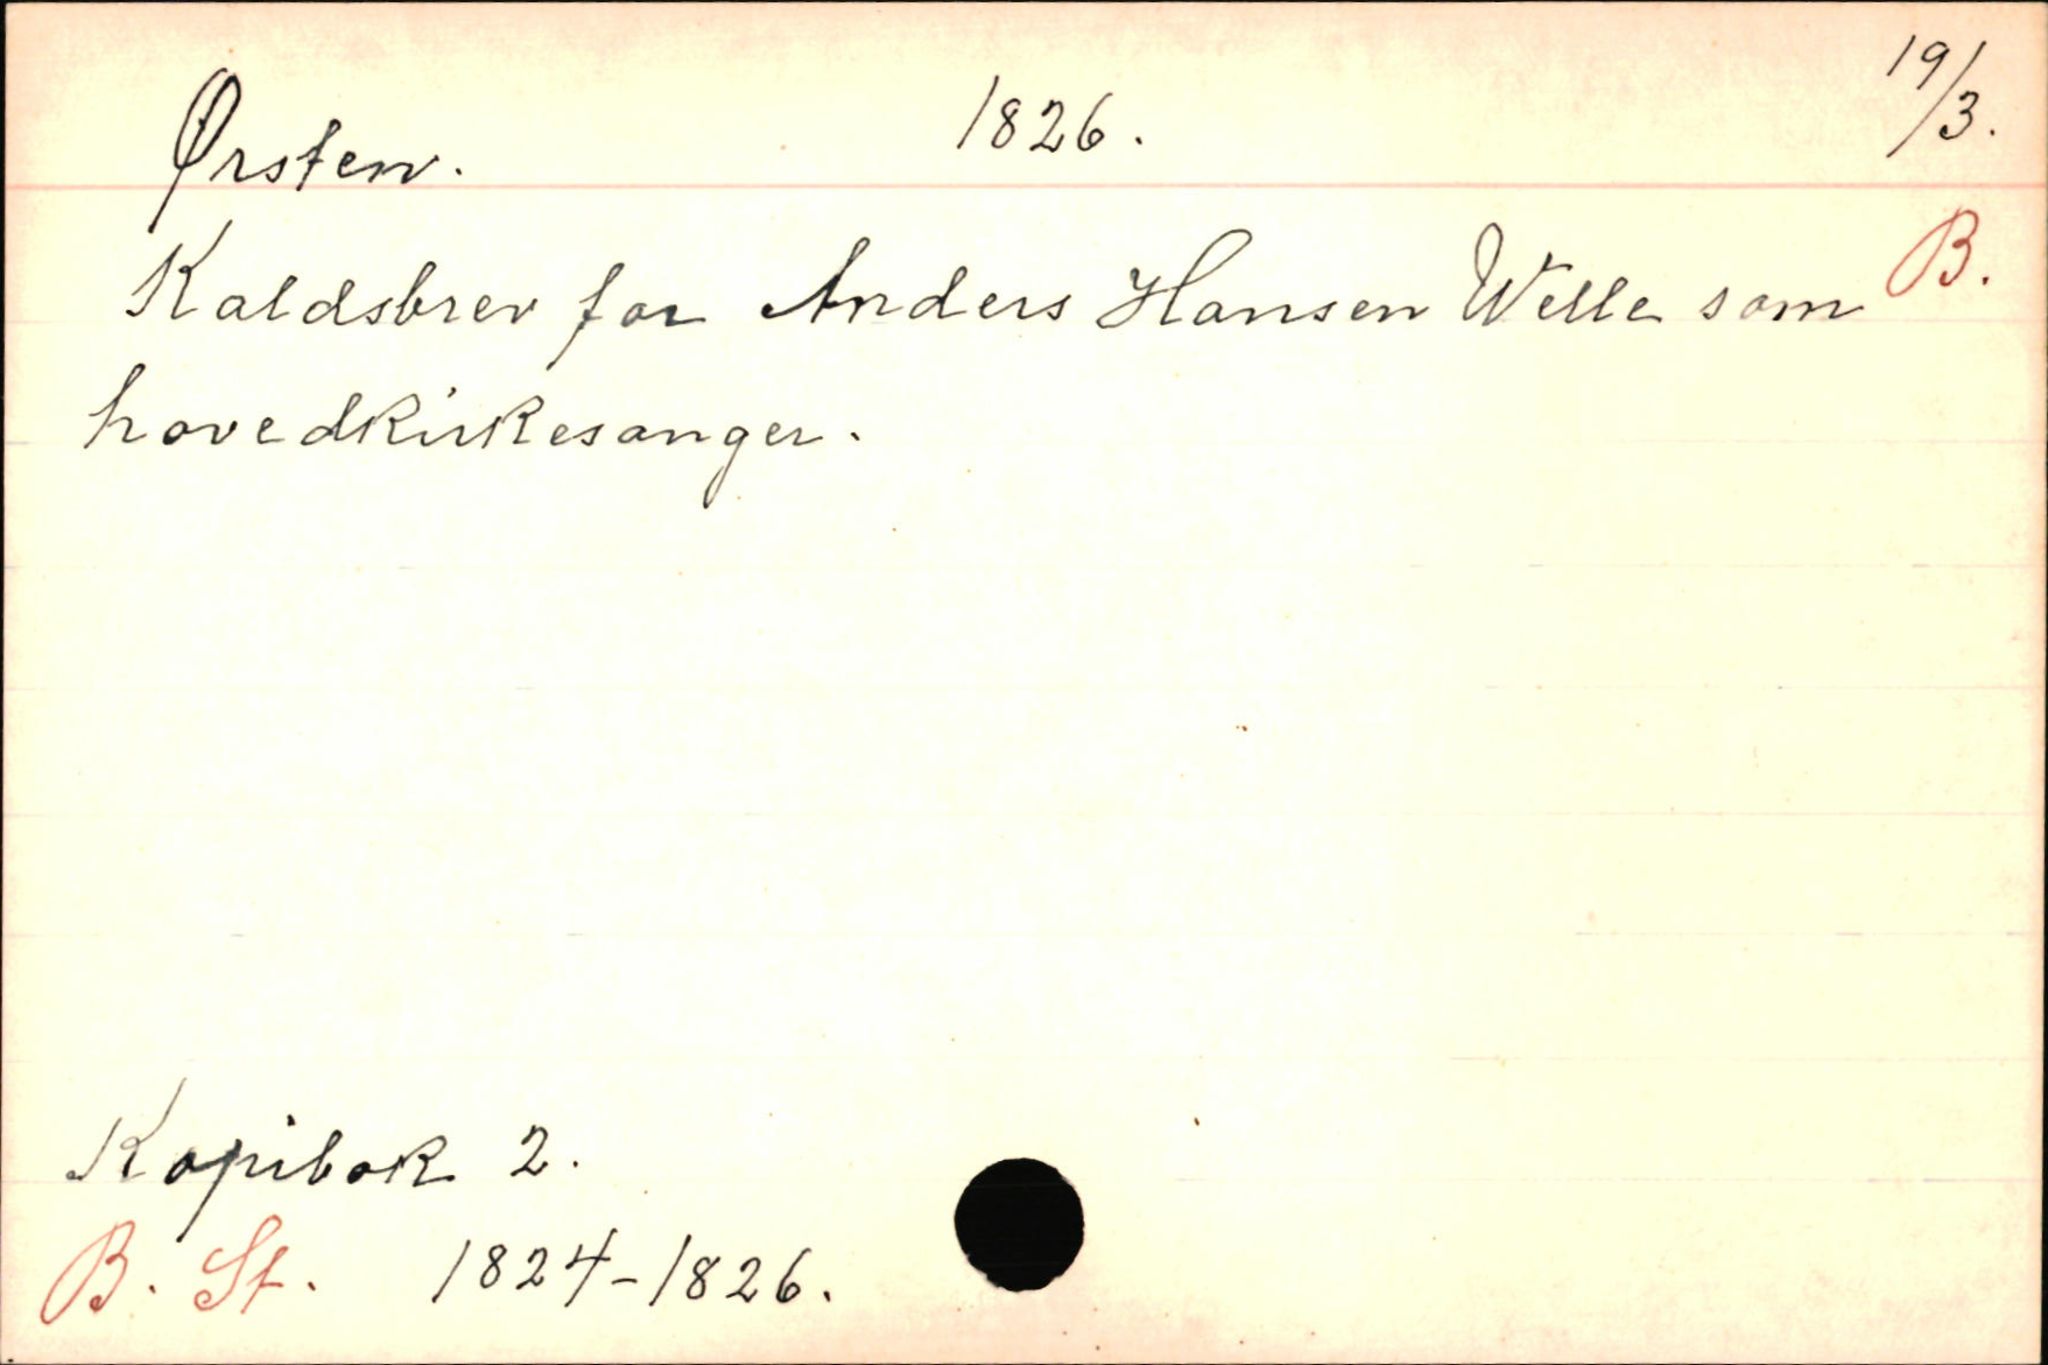 Ørsten. 1826. 19/3.
B.
Kaldsbrev for Anders Hansen Welle som
hovedkirkesanger.
Kopibok 2.
B. St. 1824-1826.